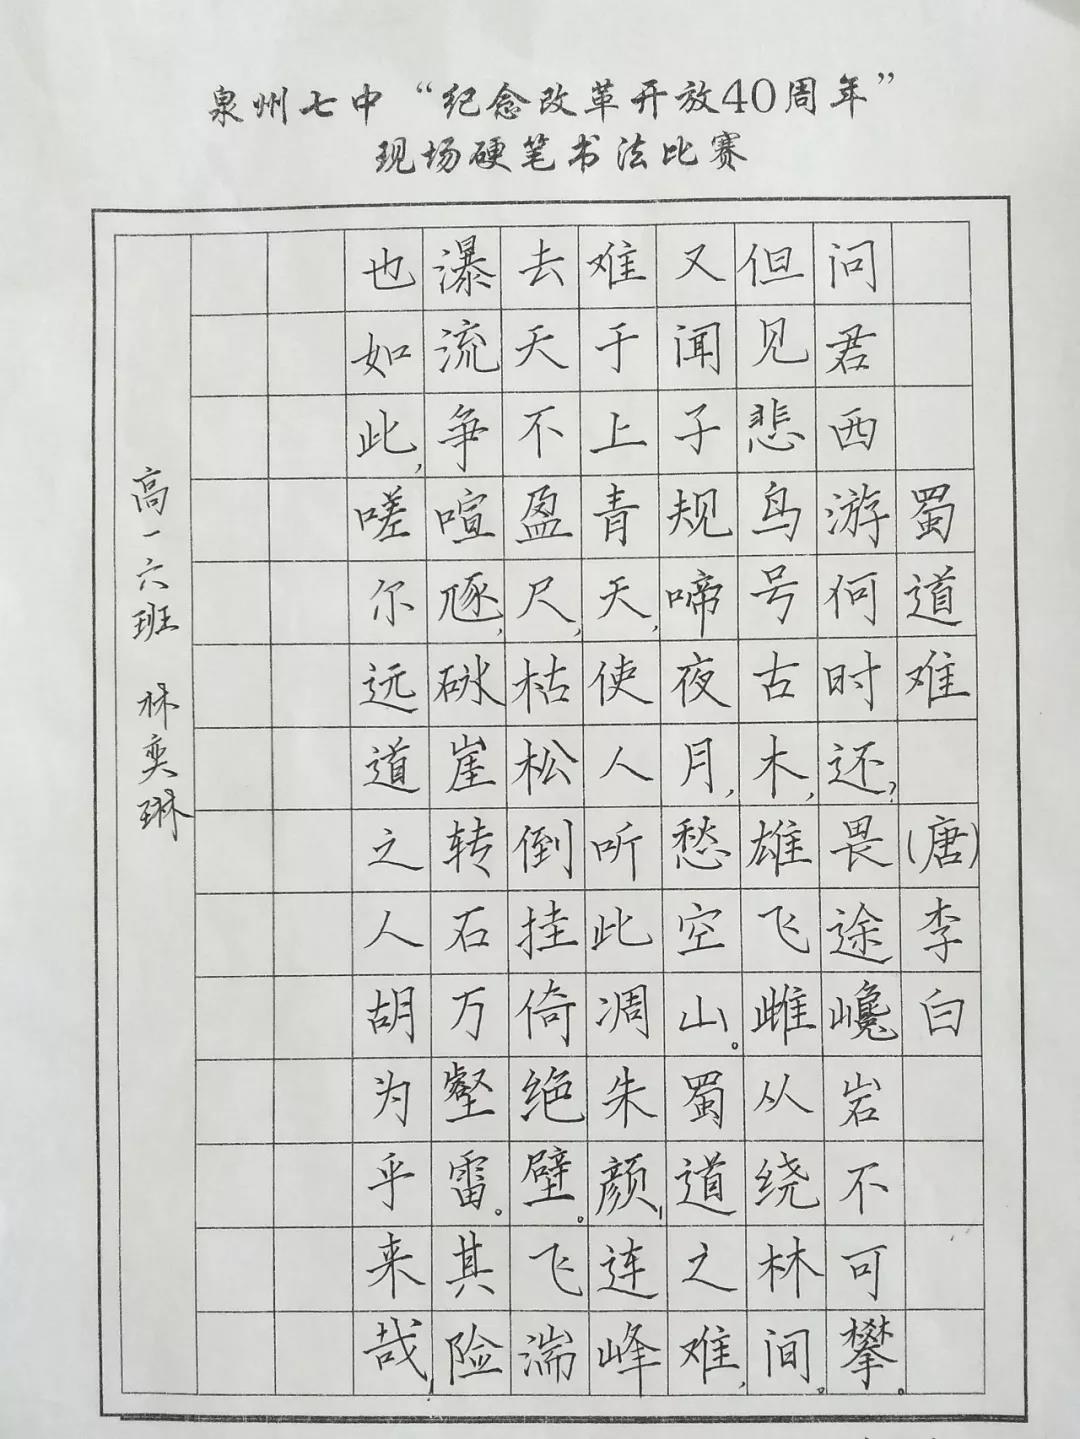 泉州七中“纪念改革开放40周年”
现场硬笔书法比赛
蜀道难 (唐)李白
问君西游何时还?畏途巉岩不可攀。
但见悲鸟号古木,雄飞雌从绕林间。
又闻子规啼夜月,愁空山。蜀道之难,
难于上青天,使人听此凋朱颜!连峰
去天不盈尺,枯松倒挂倚绝壁。飞湍
瀑流争喧豗,砯崖转石万壑雷。其险
也如此,嗟尔远道之人胡为乎来哉!
高一六班 林奕琳